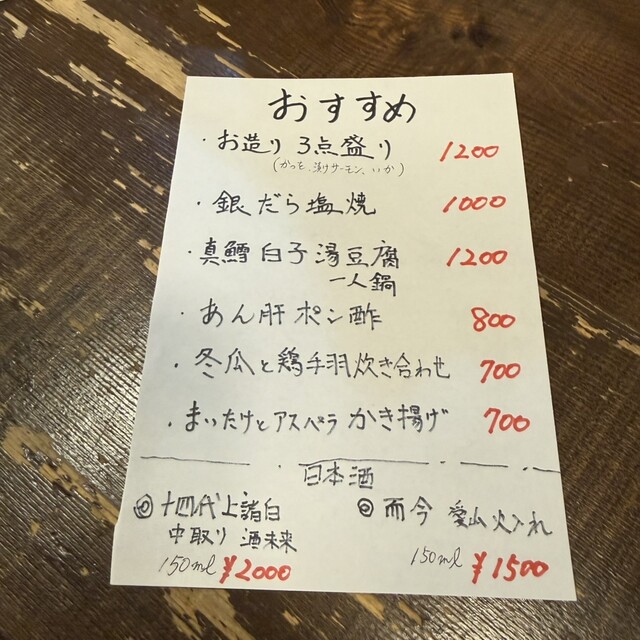 おすすめ
・お造り 3点盛り 1200
(かつを、漬けサーモン、いか)
・銀だら塩焼 1000
・真鱈白子湯豆腐 1200
一人鍋
・あん肝ポン酢 800
・冬瓜と鶏手羽炊き合わせ 700
・まいたけとアスパラかき揚げ 700
日本酒
◎十四代上諸白 ◎而今 愛山火入れ
中取り 酒未来
150ml ¥2000 150ml ¥1500